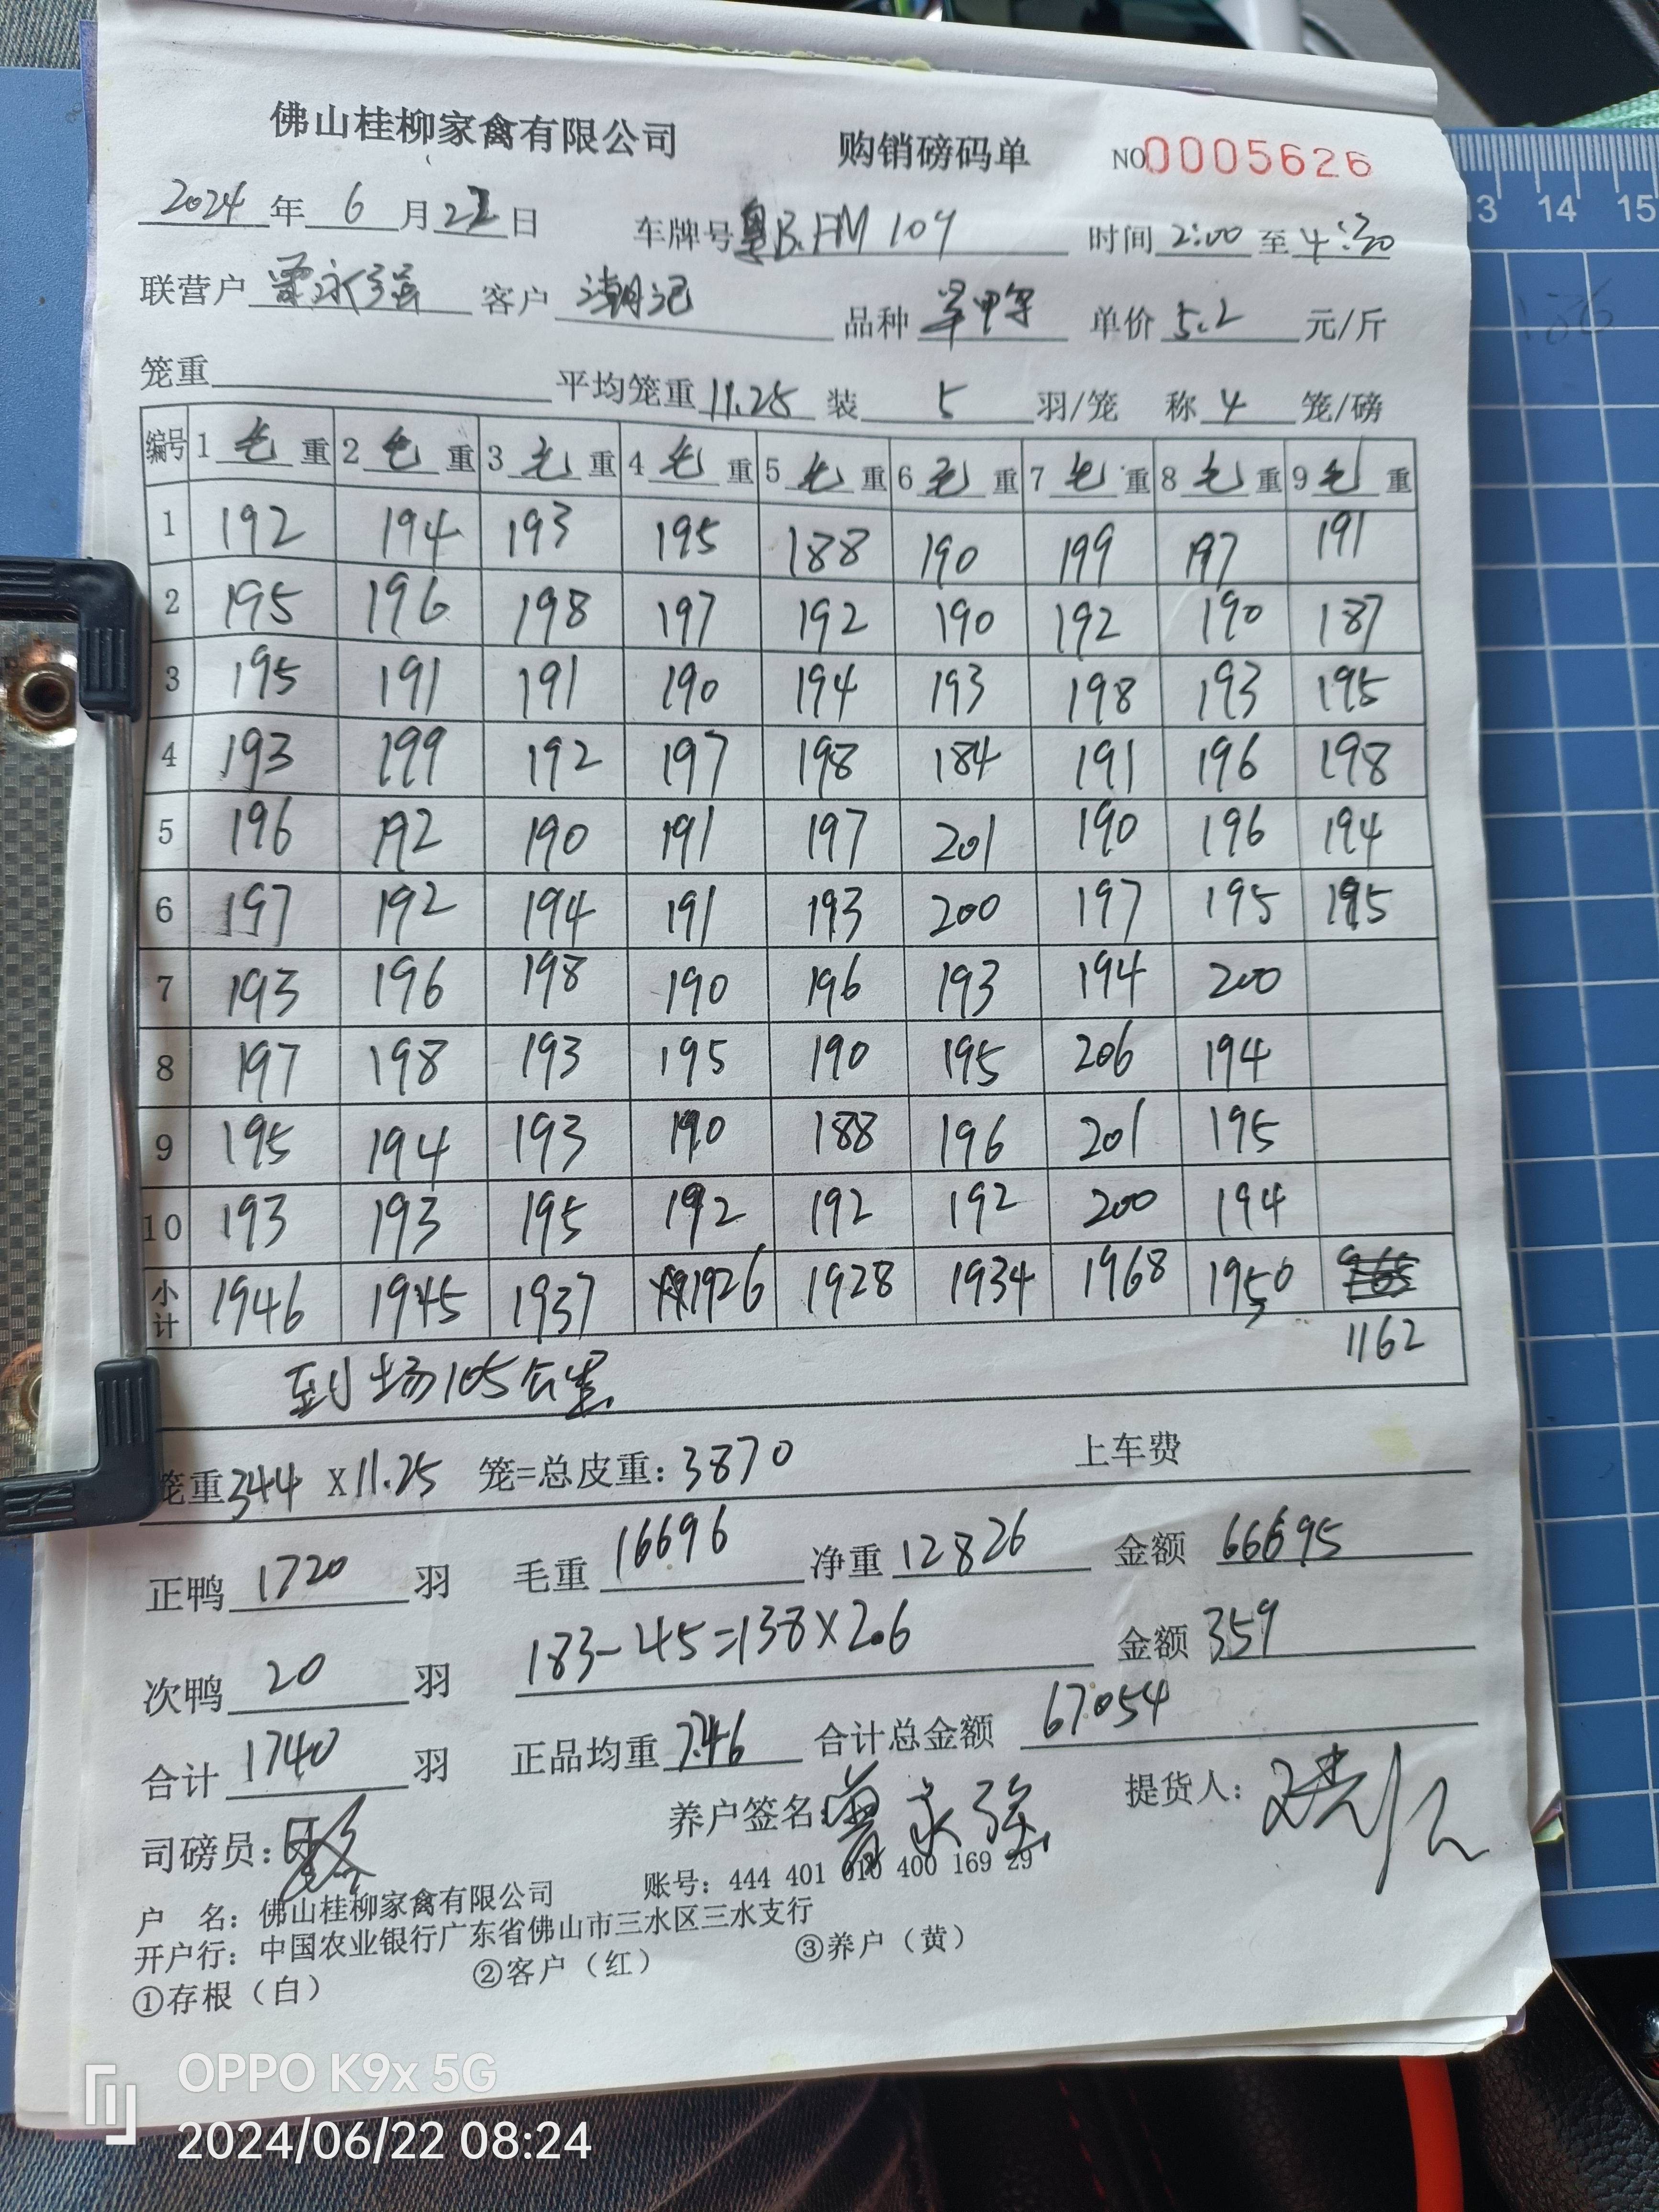 佛山桂柳家禽有限公司 购销磅码单 NO0005626
2024年6月22日 车牌号粤B.FM109 时间2:00至4:30
联营户曾永强 客户潮记 品种 单价5.2元/斤
笼重 平均笼重11.25 装5羽/笼 称4笼/磅
编号 1毛重 2毛重 3毛重 4毛重 5毛重 6毛重 7毛重 8毛重 9毛重
1 192 194 193 195 188 190 199 197 191
2 195 196 198 197 192 190 192 190 187
3 195 191 191 190 194 193 198 193 195
4 193 199 192 197 198 184 191 196 198
5 196 192 190 191 197 201 190 196 194
6 197 192 194 191 193 200 197 195 195
7 193 196 198 190 196 193 194 200
8 197 198 193 195 190 195 206 194
9 195 194 193 190 188 196 201 195
10 193 193 195 192 192 192 200 194
小计 1946 1945 1937 1926 1928 1934 1968 1950
1162
到场105公里
笼重344 X11.25 笼=总皮重:3870 上车费
正鸭1720羽 毛重16696 净重12826 金额66695
次鸭20羽 183-45=138×2.6 金额359
合计1740羽 正品均重7.46 合计总金额67054
司磅员: 养户签名:曾永强 提货人:
户 名:佛山桂柳家禽有限公司 账号:444 401 010 400 169 29
开户行:中国农业银行广东省佛山市三水区三水支行
①存根(白) ②客户(红) ③养户(黄)
13 14 15
OPPO K9x 5G
2024/06/22 08:24